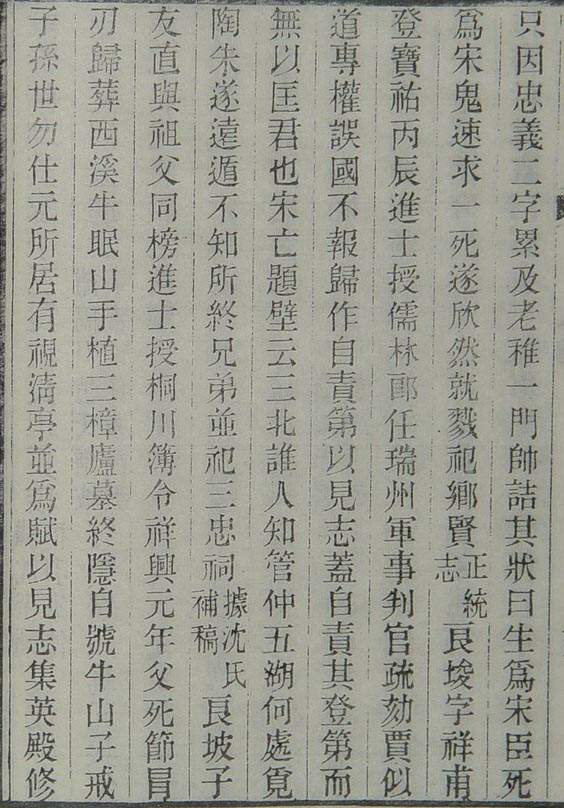 只因忠義二字累及老稚一門帥詰其狀曰生爲宋臣死
爲宋鬼速求一死遂欣然就戮祀鄉賢正統志良埈字祥甫
登寶祐丙辰進士授儒林郎任瑞州軍事判官疏劾賈似
道專權誤國不報歸作自責第以見志蓋自責其登第而
無以匡君也宋亡題壁云三北誰人知管仲五湖何處覓
陶朱遂遠遁不知所終兄弟並祀三忠祠據沈氏補稿良坡子
友直與祖父同榜進士授桐川簿令祥興元年父死節冒
刃歸葬西溪牛眠山手植三樟廬墓終隱自號牛山子戒
子孫世勿仕元所居有視淸亭並爲賦以見志集英殿修